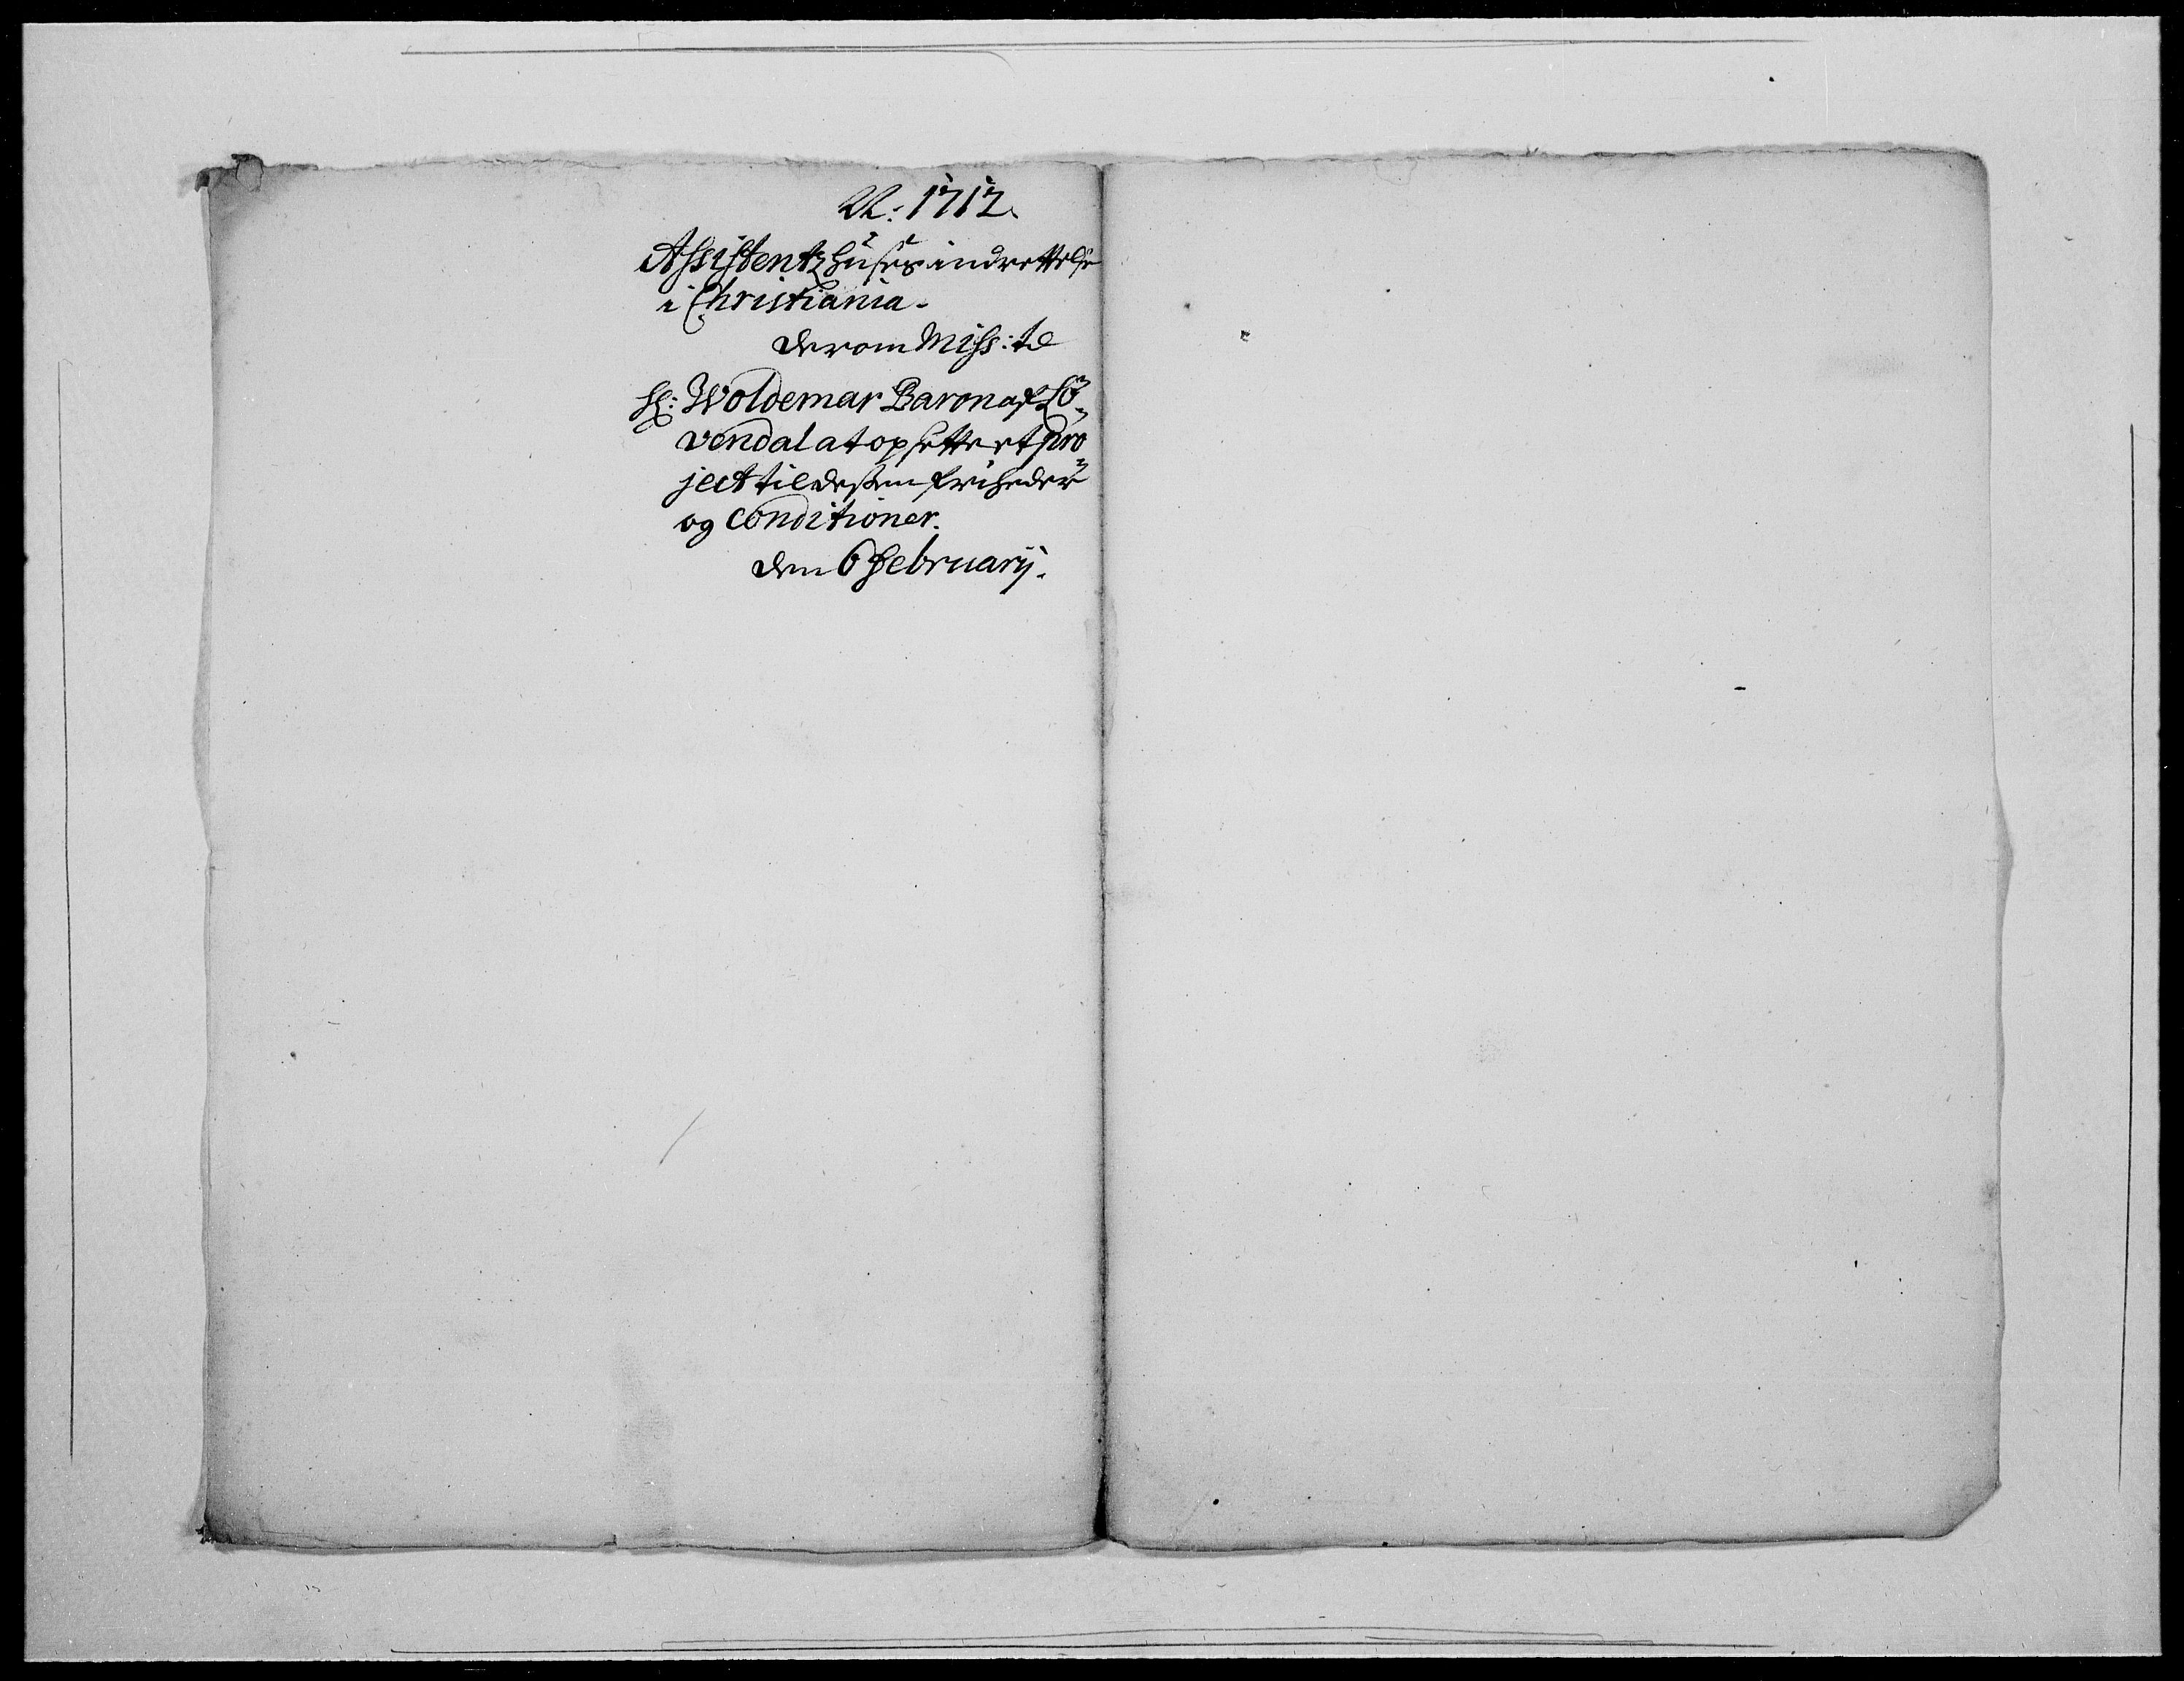 A: 1712.
Assistentzhuses indrettelse
i Christiania.
derom Miss: til
H: Woldemar Baron af Lö-
vendal at opsette et pro
ject til dessen friheder
og Conditioner.
den 6 Februarij.